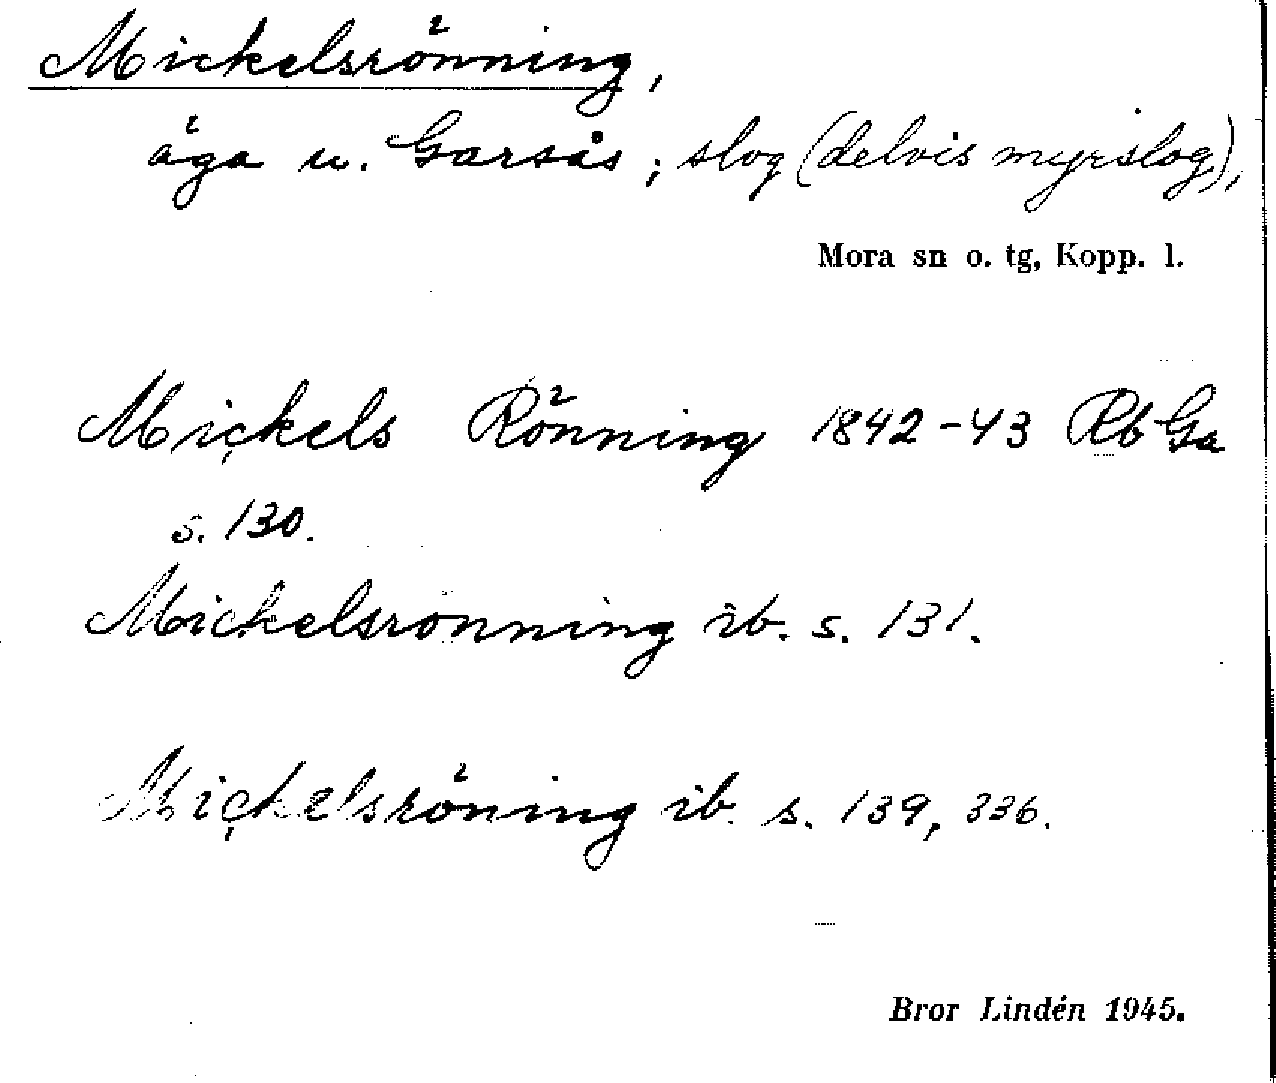 Mickelsrönning,
äga u. Garsås; slog (delvis myrslog),
Mora sn o. tg, Kopp. l.
Mickels Rönning 1842-43 Rb Ga
s. 130.
Mickelsronning ib. s. 131.
Mickelsröning ib. s. 139, 336.
Bror Lindén 1945.